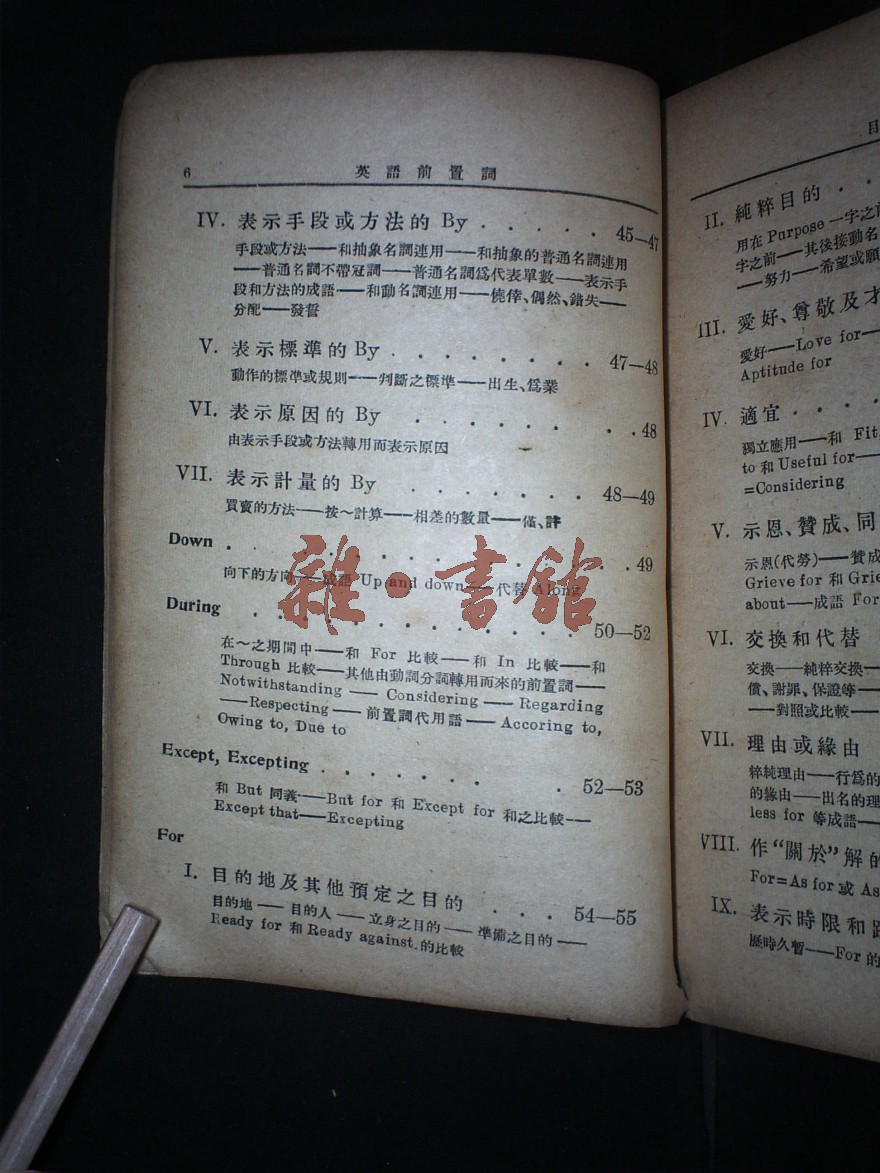 6 英語前置詞
IV. 表示手段或方法的 By . . . . . 45—47
手段或方法——和抽象名詞連用——和抽象的普通名詞連用
——普通名詞不帶冠詞——普通名詞爲代表單數——表示手
段和方法的成語——和動名詞連用——僥倖、偶然、錯失——
分配——發誓
V. 表示標準的 By . . . . . . . . 47—48
動作的標準或規則——判斷之標準——出生、爲業
VI. 表示原因的 By . . . . . . . . 48
由表示手段或方法轉用而表示原因
VII. 表示計量的 By . . . . . . . 48—49
買賣的方法——按～計算——相差的數量——僅、許
Down . . . . . . . . . . . . 49
向下的方向——成語 Up and down——代替 Along
During . . . . . . . . . . . . 50—52
在～之期間中——和 For 比較——和 In 比較——和
Through 比較——其他由動詞分詞轉用而來的前置詞——
Notwithstanding —— Considering —— Regarding
——Respecting —— 前置詞代用語 —— Accoring to,
Owing to, Due to
Except, Excepting . . . . . . . . 52—53
和 But 同義——But for 和 Except for 和之比較——
Except that——Excepting
For
I. 目的地及其他預定之目的 . . . 54—55
目的地 —— 目的人 —— 立身之目的 —— 準備之目的 ——
Ready for 和 Ready against 的比較
雜·書館
目
II. 純粹目的 . .
用在 Purpose 一字之前
字之前——其後接動名
——努力——希望或願
III. 愛好、尊敬及才
愛好——Love for——
Aptitude for
IV. 適宜 . . . .
獨立應用——和 Fit,
to 和 Useful for——
=Considering
V. 示恩、贊成、同
示恩(代勞)——贊成
Grieve for 和 Grie
about——成語 For
VI. 交換和代替
交換——純粹交換——
償、謝罪、保證等——
——對照或比較——
VII. 理由或緣由
粹純理由——行爲的
的緣由——出名的理
less for 等成語——
VIII. 作“關於”解的
For=As for 或 As
IX. 表示時限和距
歷時久暫——For 的